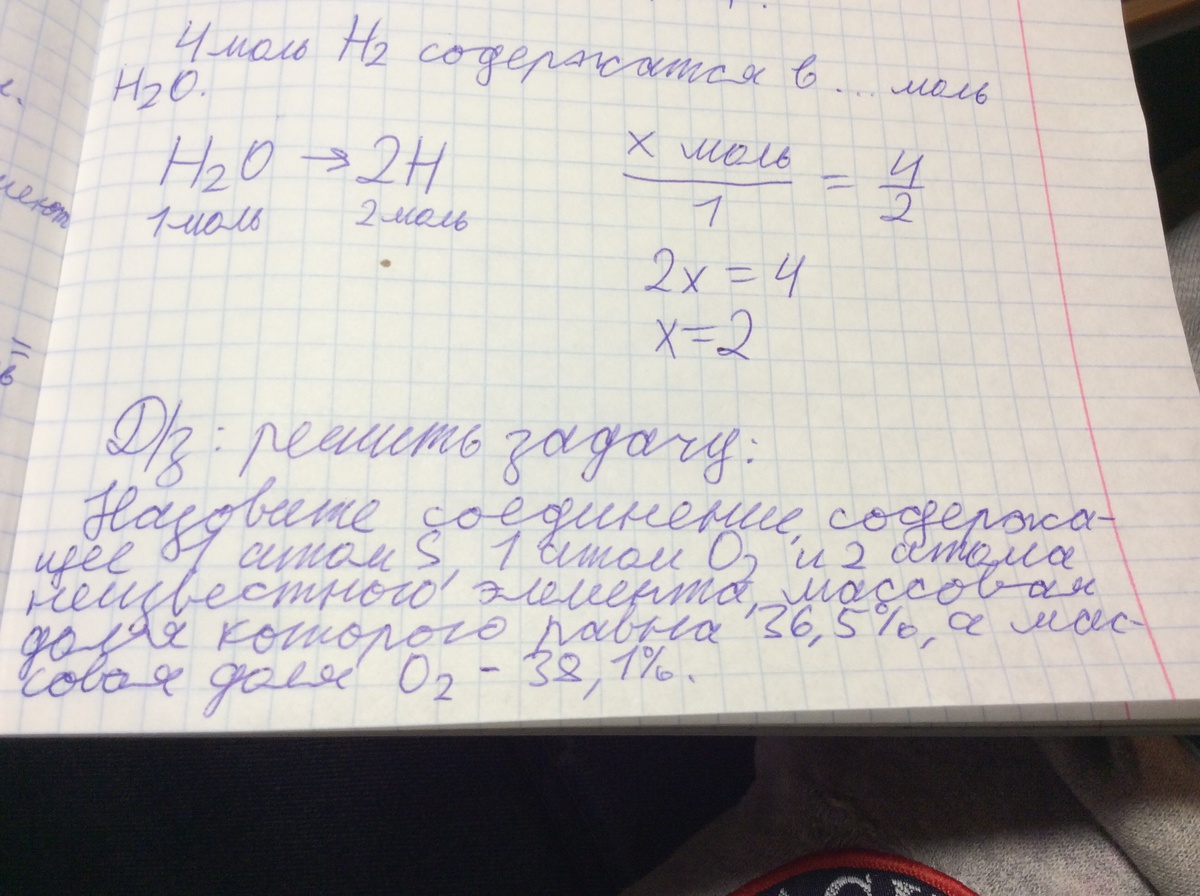 4 моль H₂ содержатся в ... моль
H₂O.
H₂O → 2H
1 моль 2 моль
x моль / 1 = 4 / 2
2x = 4
x = 2
Д/з: решить задачу:
Назовите соединение, содержа-
щее 1 атом S, 1 атом O₂ и 2 атома
неизвестного элемента, массовая
доля которого равна 36,5%, а мас-
совая доля O₂ - 38,1%.